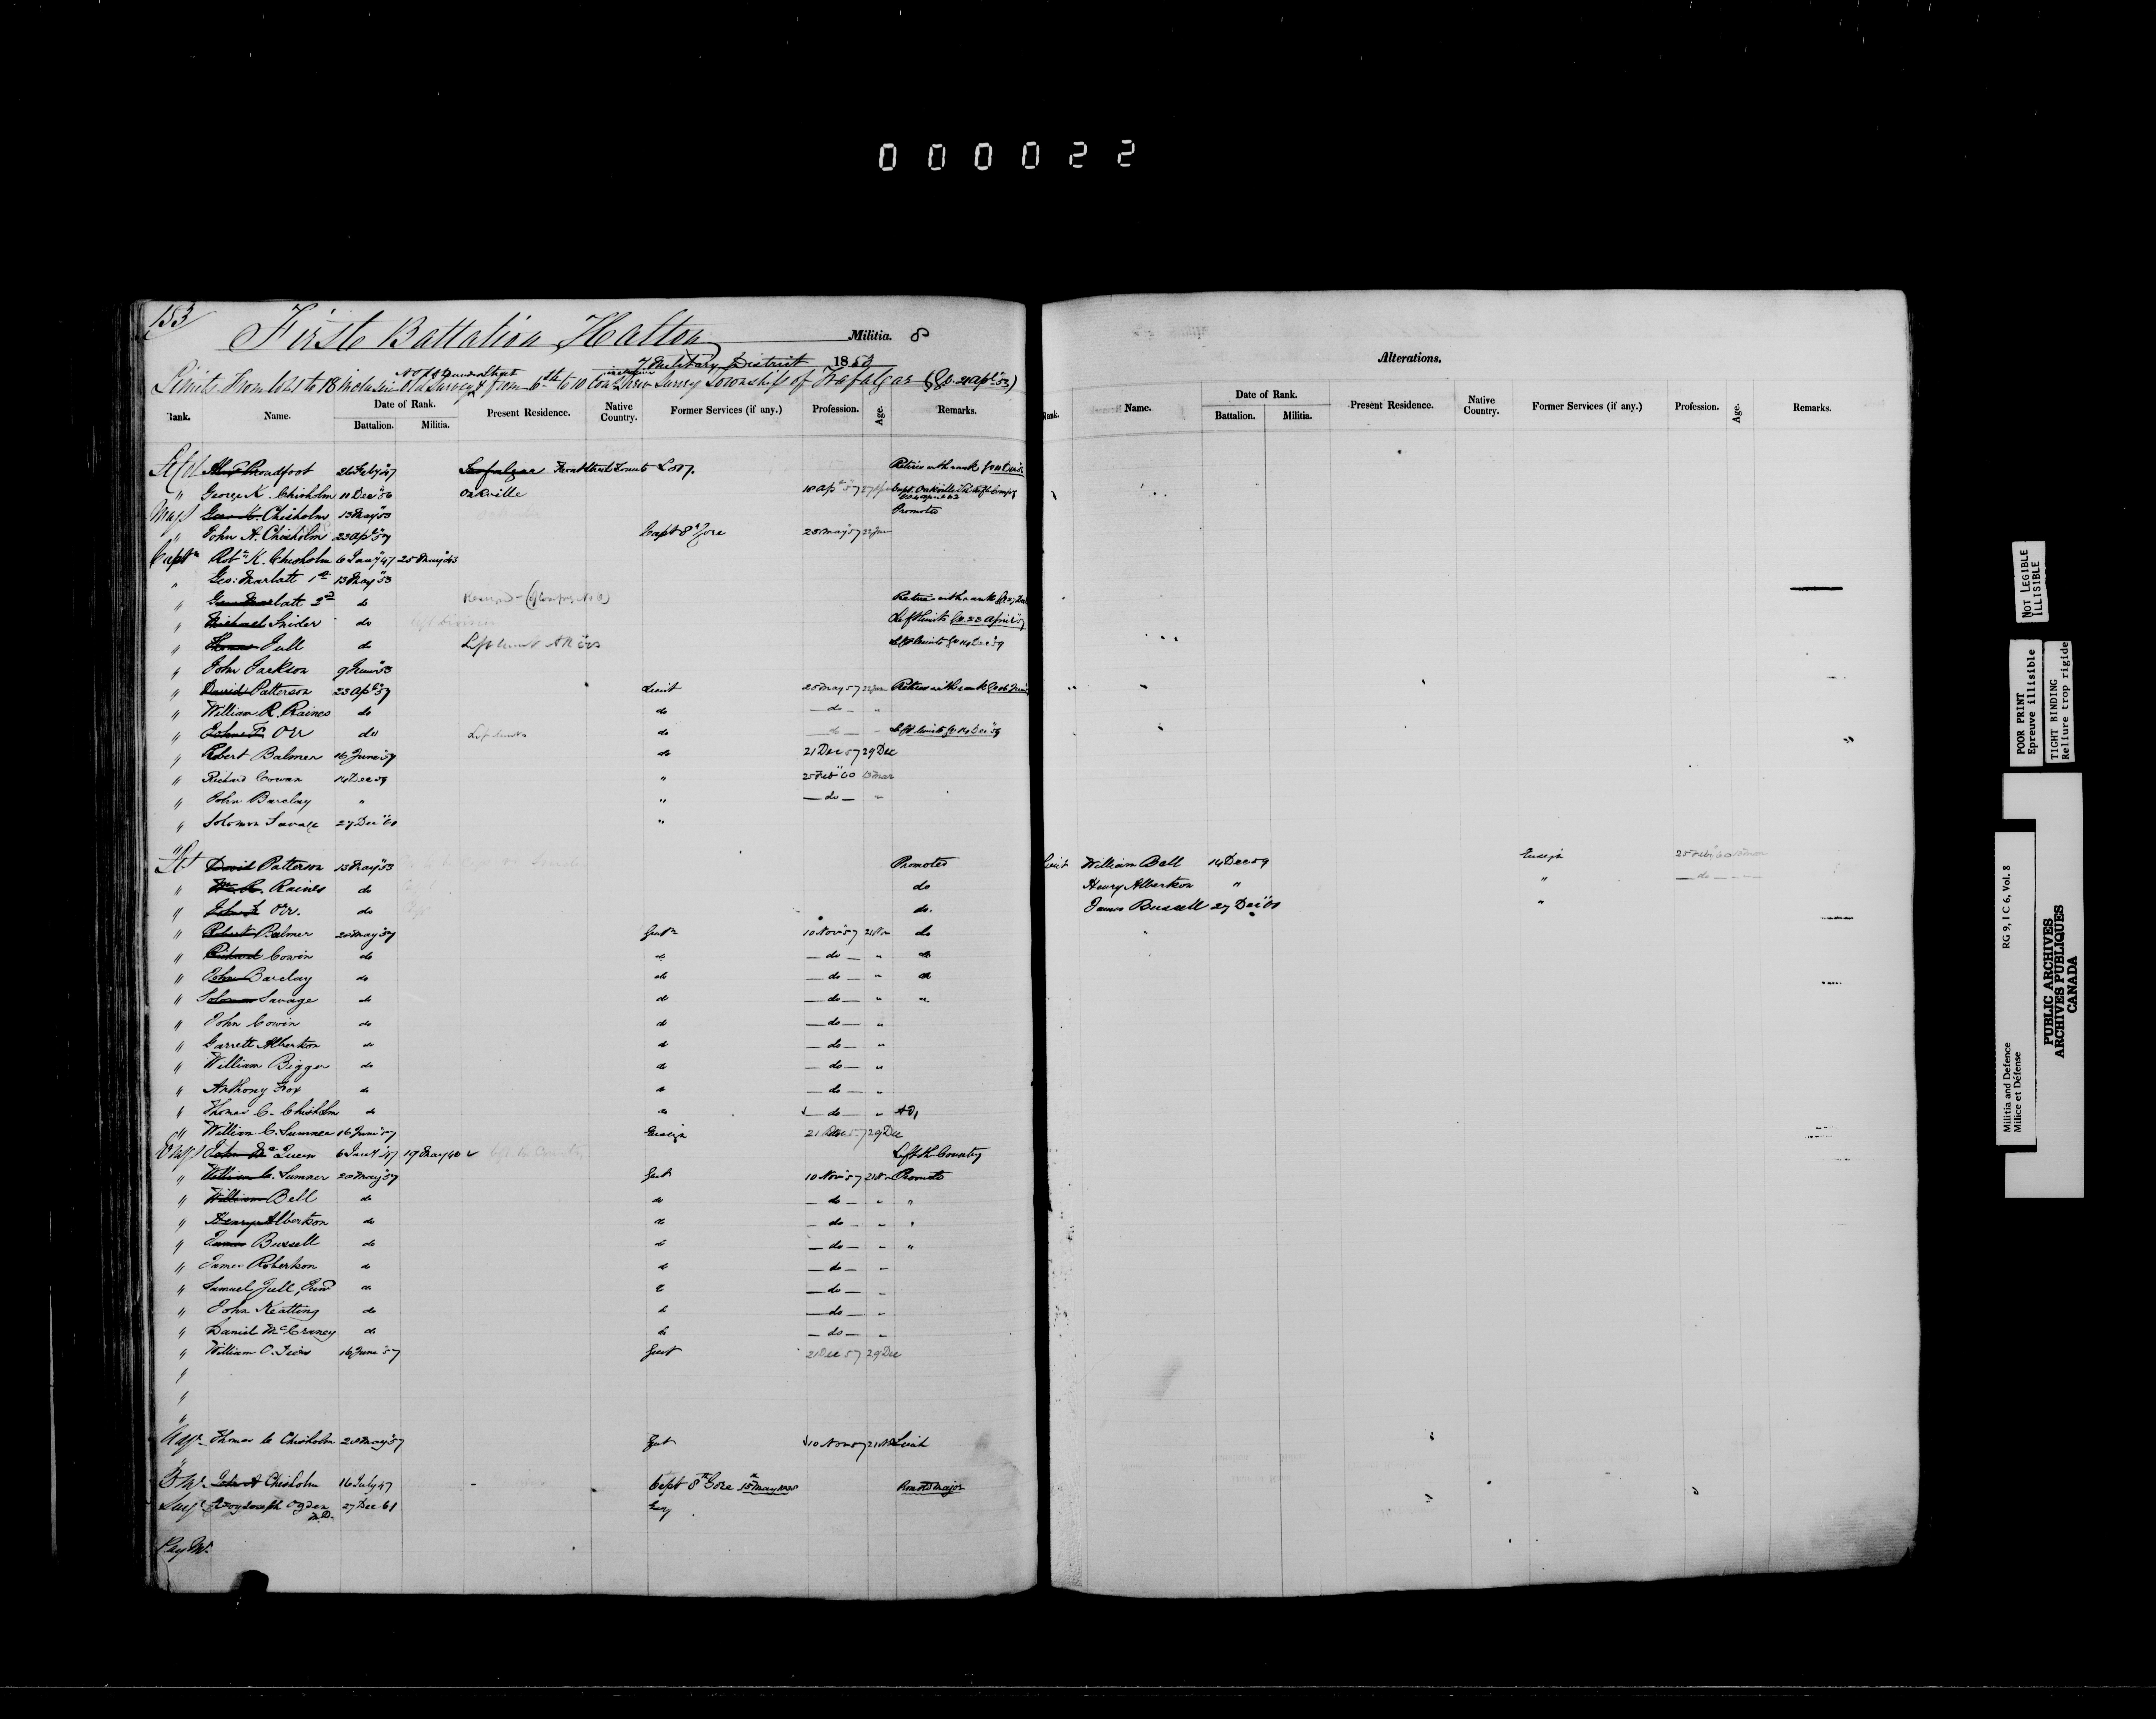 000022
153
First Battalion Halton Militia. 8
7 Military District 1860
N of Dundas Street
Limits From Lots 1 to 18 inclusive Old Survey & from 6th to 10 Con inclusive New Survey Township of Trafalgar (GO. 21 Apl 53)
Rank. Name. Date of Rank. Battalion. Militia. Present Residence. Native Country. Former Services (if any.) Profession. Age. Remarks.
Lt Col Broadfoot 26 Feby 47 Trafalgar Lot 7. Retires with rank
" George K. Chisholm 11 Dec 56 Oakville 18 Apl 57 Capt. Oakville
Majr Geo K. Chisholm 13 May 53 Promoted
" John A. Chisholm 23 Apl 57 Capt 8th Gore 25 May 57
Captn Robt K. Chisholm 6 Jany 47 25 May 43
" Geo: Marlatt 1st 13 May 53
" Geo Marlatt 2d do Retires with rank
" Michael Snider do Left Limits GO. 22 April
" Thomas Jull do Left Limits GO 14 Dec 59
" John Jackson 9 June 53
" David Patterson 23 Apl 57 Lieut 25 May 57 Retires with rank
" William R. Raines do do do "
" John T. Orr do Left Limits do do Left limits GO 14 Dec 59
" Robert Balmer 16 June 59 do 21 Dec 57 29 Dec
" Richard Cowan 14 Dec 59 " 25 Feb 60 13 Mar
" John Barclay " " do "
" Solomon Savage 27 Dec 60 "
Lt David Patterson 13 May 53 Promoted
" Wm. R. Raines do do
" John T. Orr. do do.
" Robert Balmer 20 May 57 Gentn 10 Nov 57 21 Nov do
" Richard Cowin do do do " do
" John Barclay do do do " do
" Solomon Savage do do do " "
" John Cowin do do do "
" Garrett Albertson do do do "
" William Bigger do do do "
" Anthony Fox do do do "
" Thomas C. Chisholm do do do " Adj
" William C. Sumner 16 June 57 Ensign 21 Dec 57 29 Dec
Ensn John McQueen 6 Jany 47 19 May 40 Left the Country
" William C. Sumner 20 May 57 Gent 10 Nov 57 21 Nov Promoted
" William Bell do do do " "
" Henry Albertson do do do " "
" James Bussell do do do " "
" James Robertson do do do "
" Samuel Jull, Junr do do do "
" John Keatting do do do "
" Daniel McCraney do do do "
" William O. 16 June 57 Gent 21 Dec 57 29 Dec
"
"
"
Adjt. Thomas C Chisholm 20 May 57 Gent 10 Nov 57 21 Nov Lieut
Q Mr. John A Chisholm 16 July 47 Capt 8th Gore 15th May 1838 Promd Major
Surgn Joseph Ogden M.D. 27 Dec 61
Pay Mr.
Alterations.
Rank. Name. Date of Rank. Battalion. Militia. Present Residence. Native Country. Former Services (if any.) Profession. Age. Remarks.
Lieut William Bell 14 Dec 59 Ensign 25 Feb 60
Henry Albertson " " do
James Bussell 27 Dec 60 "
NOT LEGIBLE
ILLISIBLE
POOR PRINT
Epreuve illisible
TIGHT BINDING
Reliure trop rigide
Militia and Defence RG 9, I C 6, Vol. 8
Milice et Défense
PUBLIC ARCHIVES
ARCHIVES PUBLIQUES
CANADA